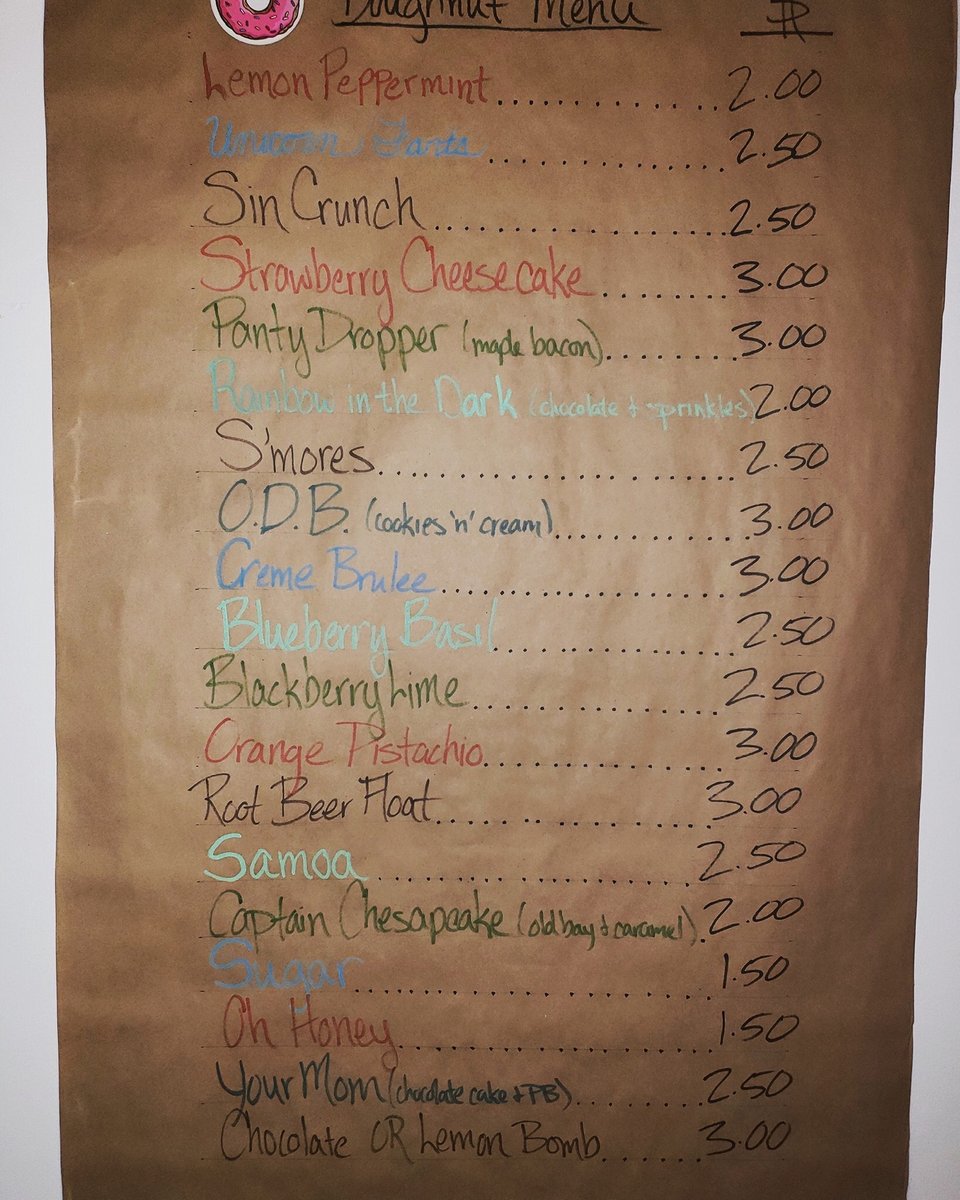 Doughnut Menu $
Lemon Peppermint.............2.00
Unicorn Farts.............2.50
Sin Crunch.................2.50
Strawberry Cheesecake........3.00
Panty Dropper (maple bacon)........3.00
Rainbow in the Dark (chocolate + sprinkles) 2.00
S'mores.....................2.50
O.D.B. (cookies 'n' cream)............3.00
Creme Brulee.................3.00
Blueberry Basil...............2.50
Blackberry Lime...............2.50
Orange Pistachio..............3.00
Root Beer Float...............3.00
Samoa.....................2.50
Captain Chesapcake (old bay + caramel).2.00
Sugar......................1.50
Oh Honey...................1.50
Your Mom (chocolate cake + PB)........2.50
Chocolate OR Lemon Bomb......3.00